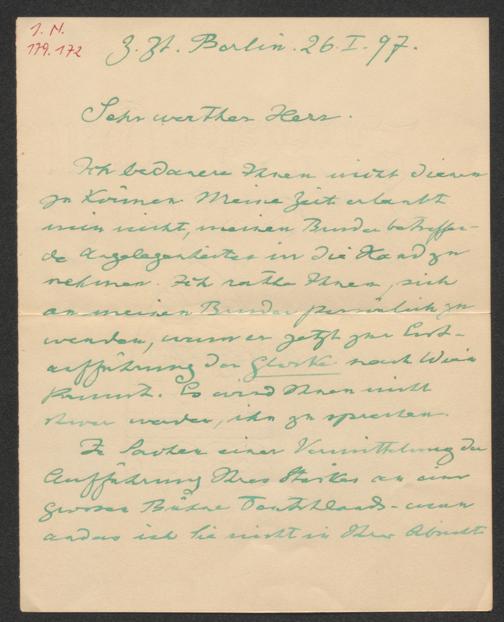 I. N.
179.172
Z. Zt. Berlin. 26.I.97.
Sehr werther Herr.
Ich bedauere Ihnen nicht dienen
zu können. Meine Zeit erlaubt
mir nicht, meinen Bruder betreffen-
de Angelegenheiten in die Hand zu
nehmen. Ich rathe Ihnen, sich
an meinen Bruder persönlich zu
wenden, wenn er jetzt zur Erst-
aufführung der Glocke nach Wien
kommt. Es wird Ihnen nicht
schwer werden, ihn zu sprechen.
In Sachen einer Vermittelung der
Aufführung Ihres Stückes an eine
grosse Bühne Deutschlands - wenn
anders ich Sie nicht in Ihrer Absicht